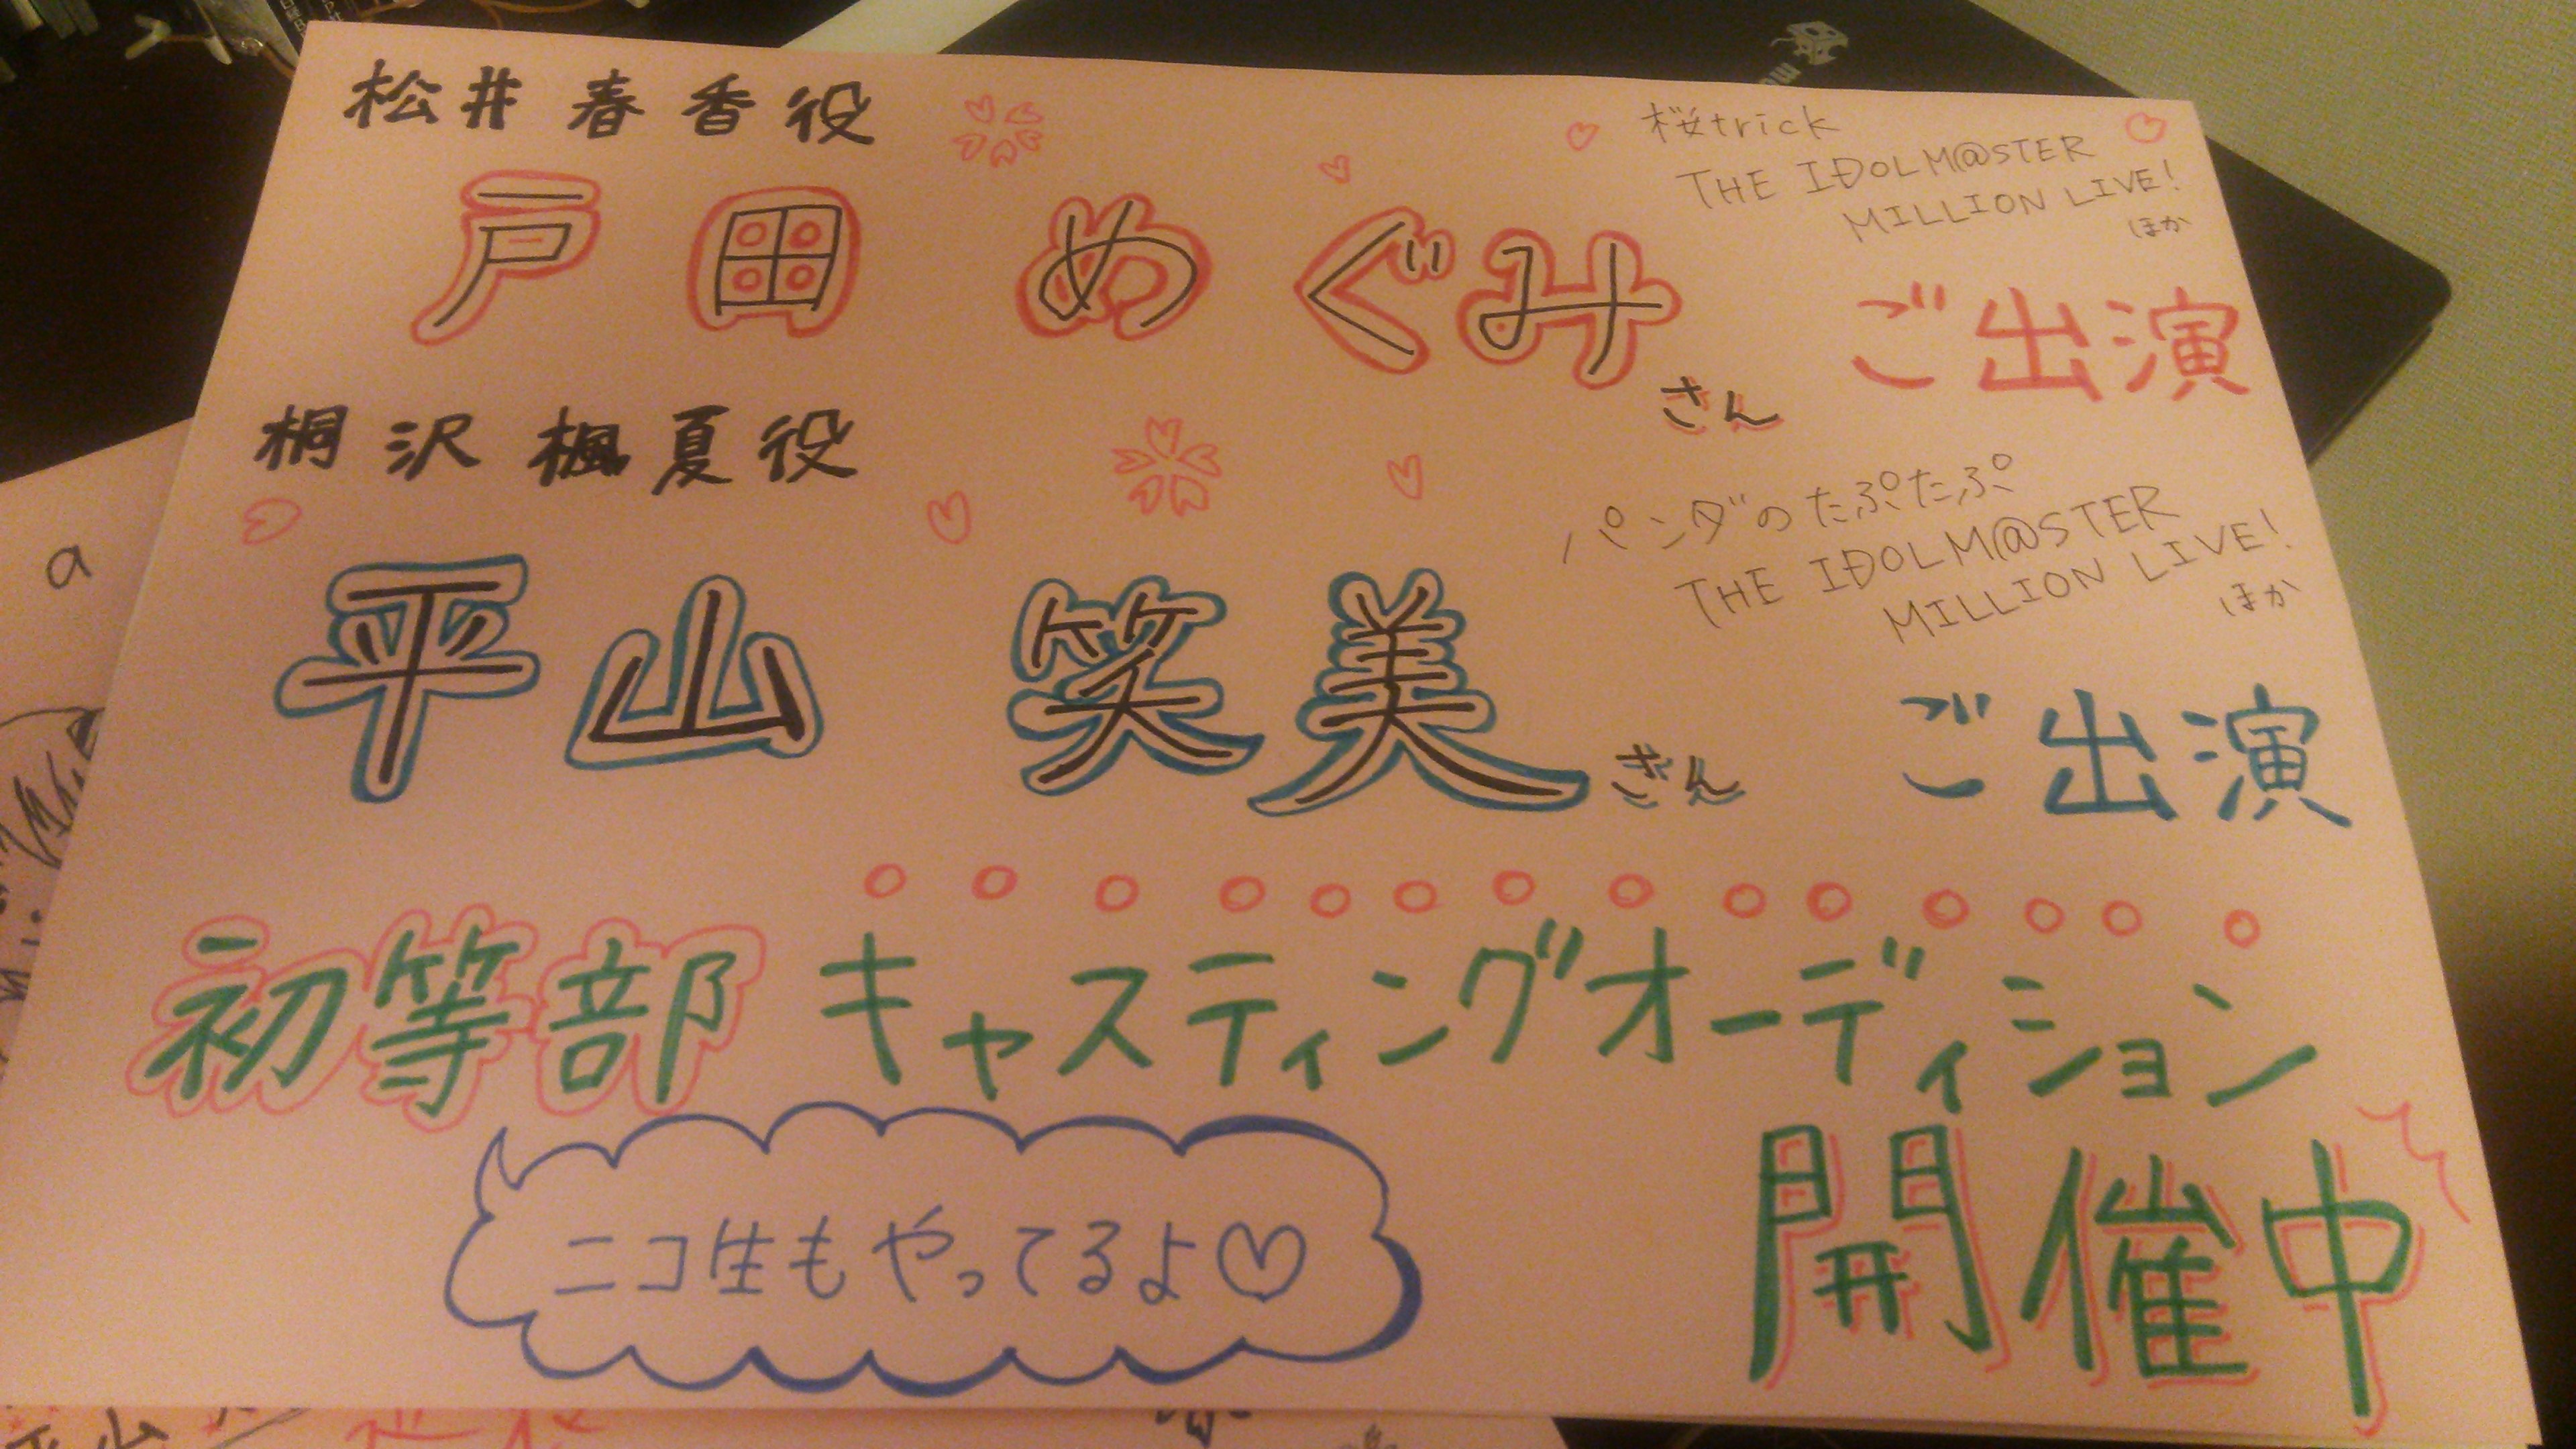 松井春香役
桜trick
THE IDOLM@STER
MILLION LIVE!
ほか
戸田めぐみさん ご出演
桐沢楓夏役
パンダのたぷたぷ
THE IDOLM@STER
MILLION LIVE!
ほか
平山笑美さん ご出演
初等部キャスティングオーディション
開催中
ニコ生もやってるよ♡
a